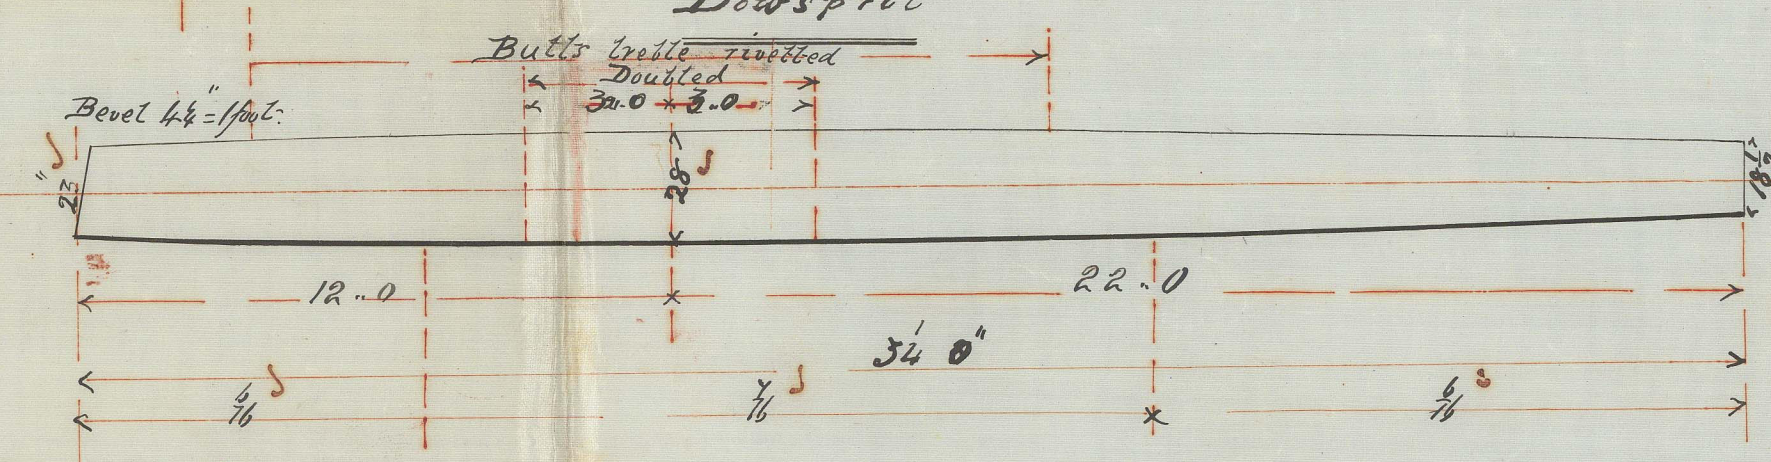 Bowsprit
Butts treble rivetted
Doubled
3..0 3..0
Bevel 4¼" = 1 foot.
23"
28
18½
12..0
22..0
34' 0"
6/16
7/16
6/16